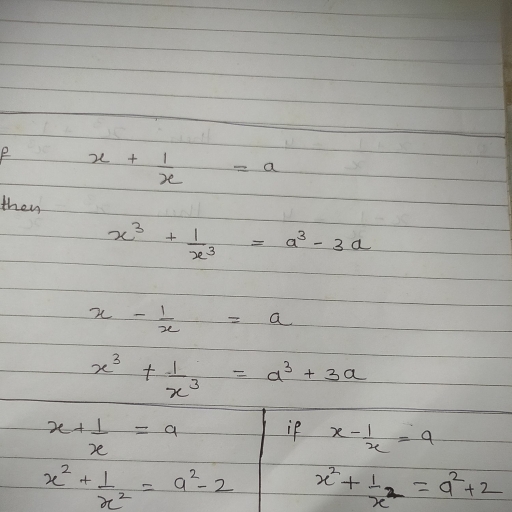 x + 1/x = a
then
x³ + 1/x³ = a³ - 3a
x - 1/x = a
x³ + 1/x³ = a³ + 3a
x + 1/x = a
x² + 1/x² = a² - 2
if x - 1/x = a
x² + 1/x² = a² + 2